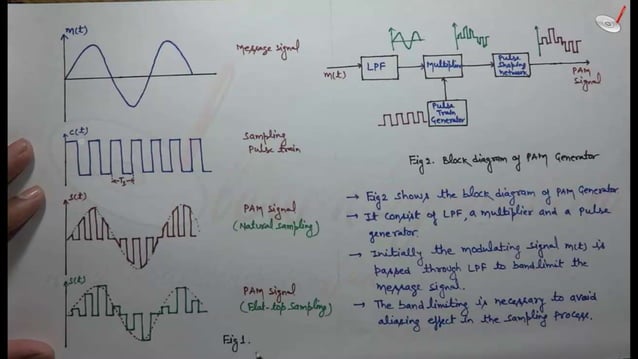 m(t)
Message signal
c(t)
Sampling
Pulse train
Ts
s(t)
PAM signal
(Natural sampling)
s(t)
PAM signal
(Flat-top sampling)
Fig 1.
m(t)
LPF
Multiplier
Pulse
Shaping
Network
PAM
Signal
Pulse
Train
Generator
Fig 2. Block diagram of PAM Generator
→ Fig 2 shows the block diagram of PAM Generator
→ It consist of LPF, a multiplier and a pulse
generator.
→ Initially the modulating signal m(t) is
passed through LPF to bandlimit the
message signal.
→ The bandlimiting is necessary to avoid
aliasing effect in the sampling process.